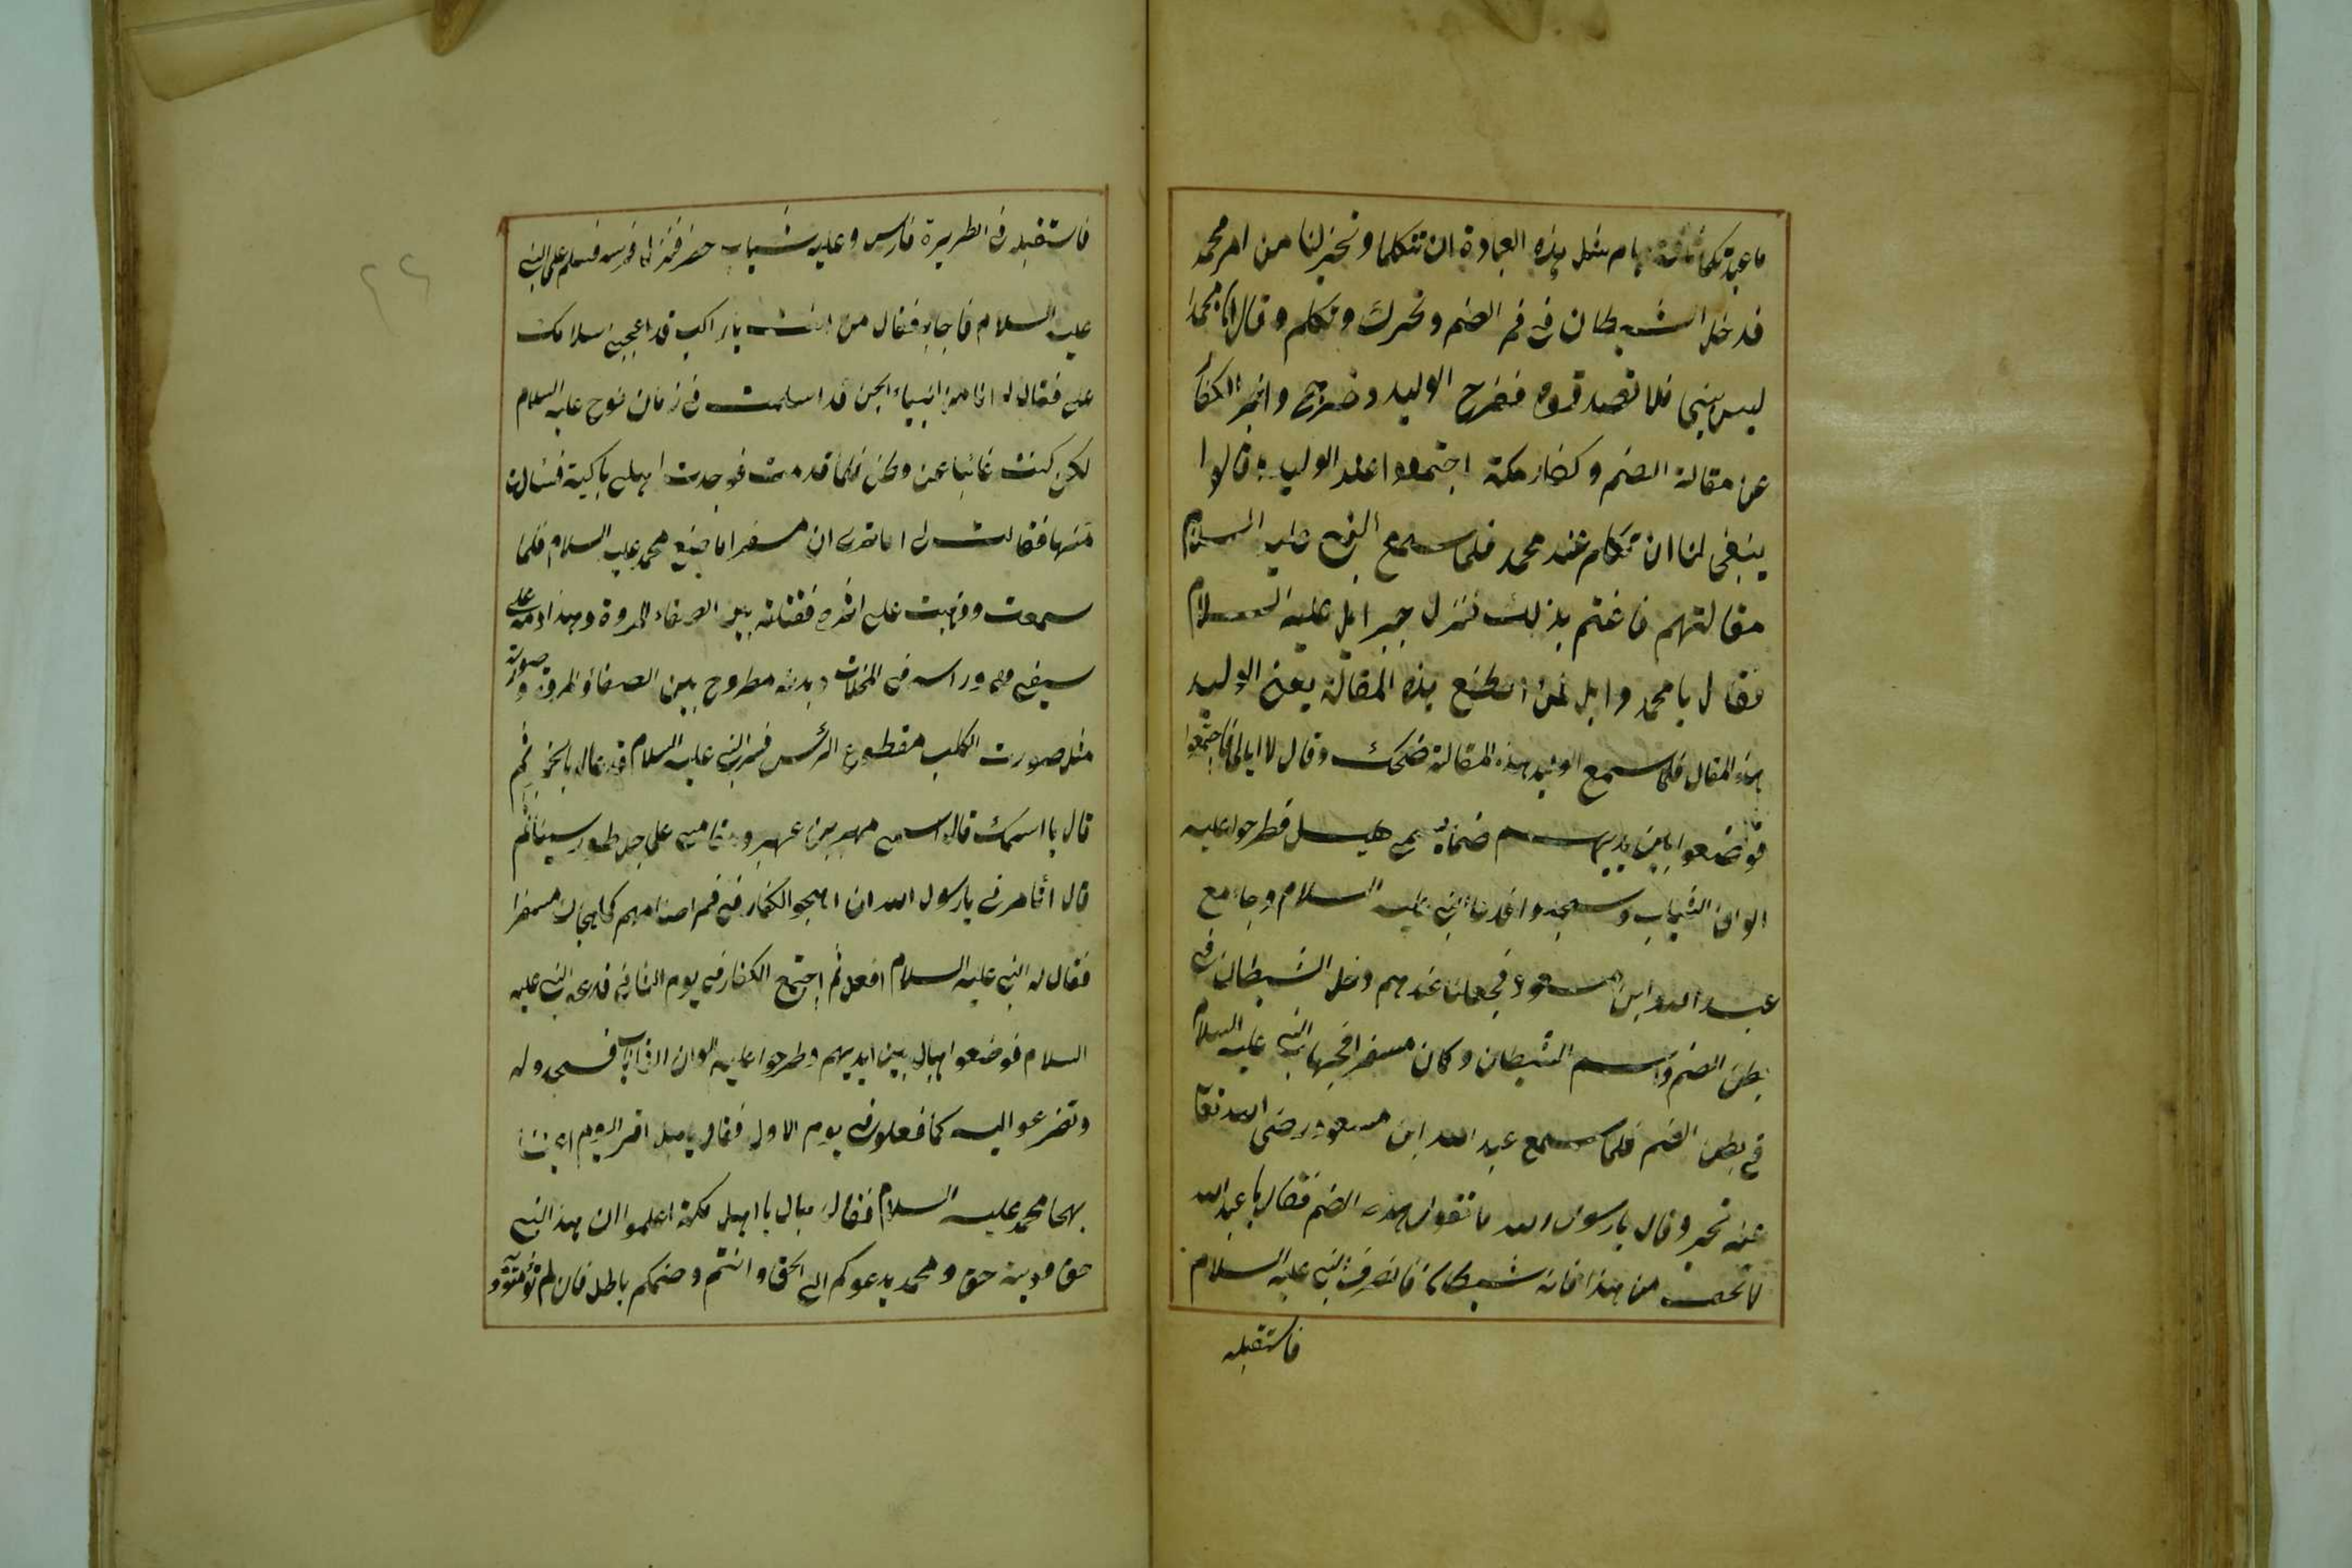 ما عبدتكما ثلثة ايام مثل هذه العبادة ان تتكلما وتخبرلنا من امر محمد
فدخل الشيطان فى فم الصنم وتحرك وتكلم وقال ان محمدا
ليس بنبى فلا تصدقوه ففرح الوليد وخرج واخبر الكفار
عن مقالة الصنم وكفار مكة اجتمعوا عند الوليد قالوا
ينبغى لنا ان تكلم عند محمد فلما سمع النبى عليه السلام
مقالتهم فاغتم بذلك فنزل جبرايل عليه السلام
فقال يا محمد وابل لمن اصطنع هذه المقالة يعنى الوليد
هذه المقال فلما سمع الوليد هذه المقالة ضحك وقال لا ابالى فاجتمعوا
فوضعوا بين يديهم صنما يسمى هبل فطرحوا عليه
الوان الثياب وسجدوا فدعا النبى عليه السلام وجاء مع
عبد الله ابن مسعود فجعلنا عندهم ودخل الشيطان فى
بطن الصنم واسم الشيطان وكان مسفرا فجها النبى عليه السلام
فى بطن الصنم فلما سمع عبد الله ابن مسعود رضى الله تعا
عنه تحير وقال يا رسول الله ما تقول هذه الصنم فقال يا عبد الله
لا تخف من هذا فانه شيطان فانصرف النبى عليه السلام
فاستقبله
فاستقبله فى الطريرة فارس وعليه ثياب خضر فنزل فرسه فسلم على النبى
عليه السلام فاجابه فقال من انت يا راكب قد اعجبنى سلامك
على فقال له انا من انبياء الجن قد اسلمت فى زمان نوح عليه السلام
لكن كنت غائبا عن وطن فلما قدمت فوجدت اهلى باكية فسالت
منها فقالت لى اما ترى ان مسفرا ما صنع محمد عليه السلام فلما
سمعت وذهبت على اثره فقتلته بين الصفاء والمروة وهذا دمه على
سيفى هى وراسه فى المخلات وبدنه مطروح بين الصفا والمروة وصورته
مثل صورت الكلب مقطوع الرئس فسر النبى عليه السلام فدعا له بالخير ثم
قال ما اسمك قال اسمى مهير بن عبهر ومقامى على جبل طور سينا ثم
قال أتامرنى يا رسول الله ان اهجو الكفار فى فم اصنامهم كما هجاك مسفرا
فقال له النبى عليه السلام افعل ثم اجتمع الكفار فى يوم الثانى فدعى النبى عليه
السلام فوضعوا هبال بين ايديهم وطرحوا عليه الوان الثياب فسجدوله
وتضرعوا اليه كما فعلوا فى يوم الاول فقال يا هبل اقر اليوم اعيننا
بهجا محمد عليه السلام فقال هبال يا اهل مكة اعلموا ان هذا النبى
حق ودينه حق ومحمد يدعوكم الى الحق وانتم وصنمكم باطل فان لم تؤمنوا به و
٢٢